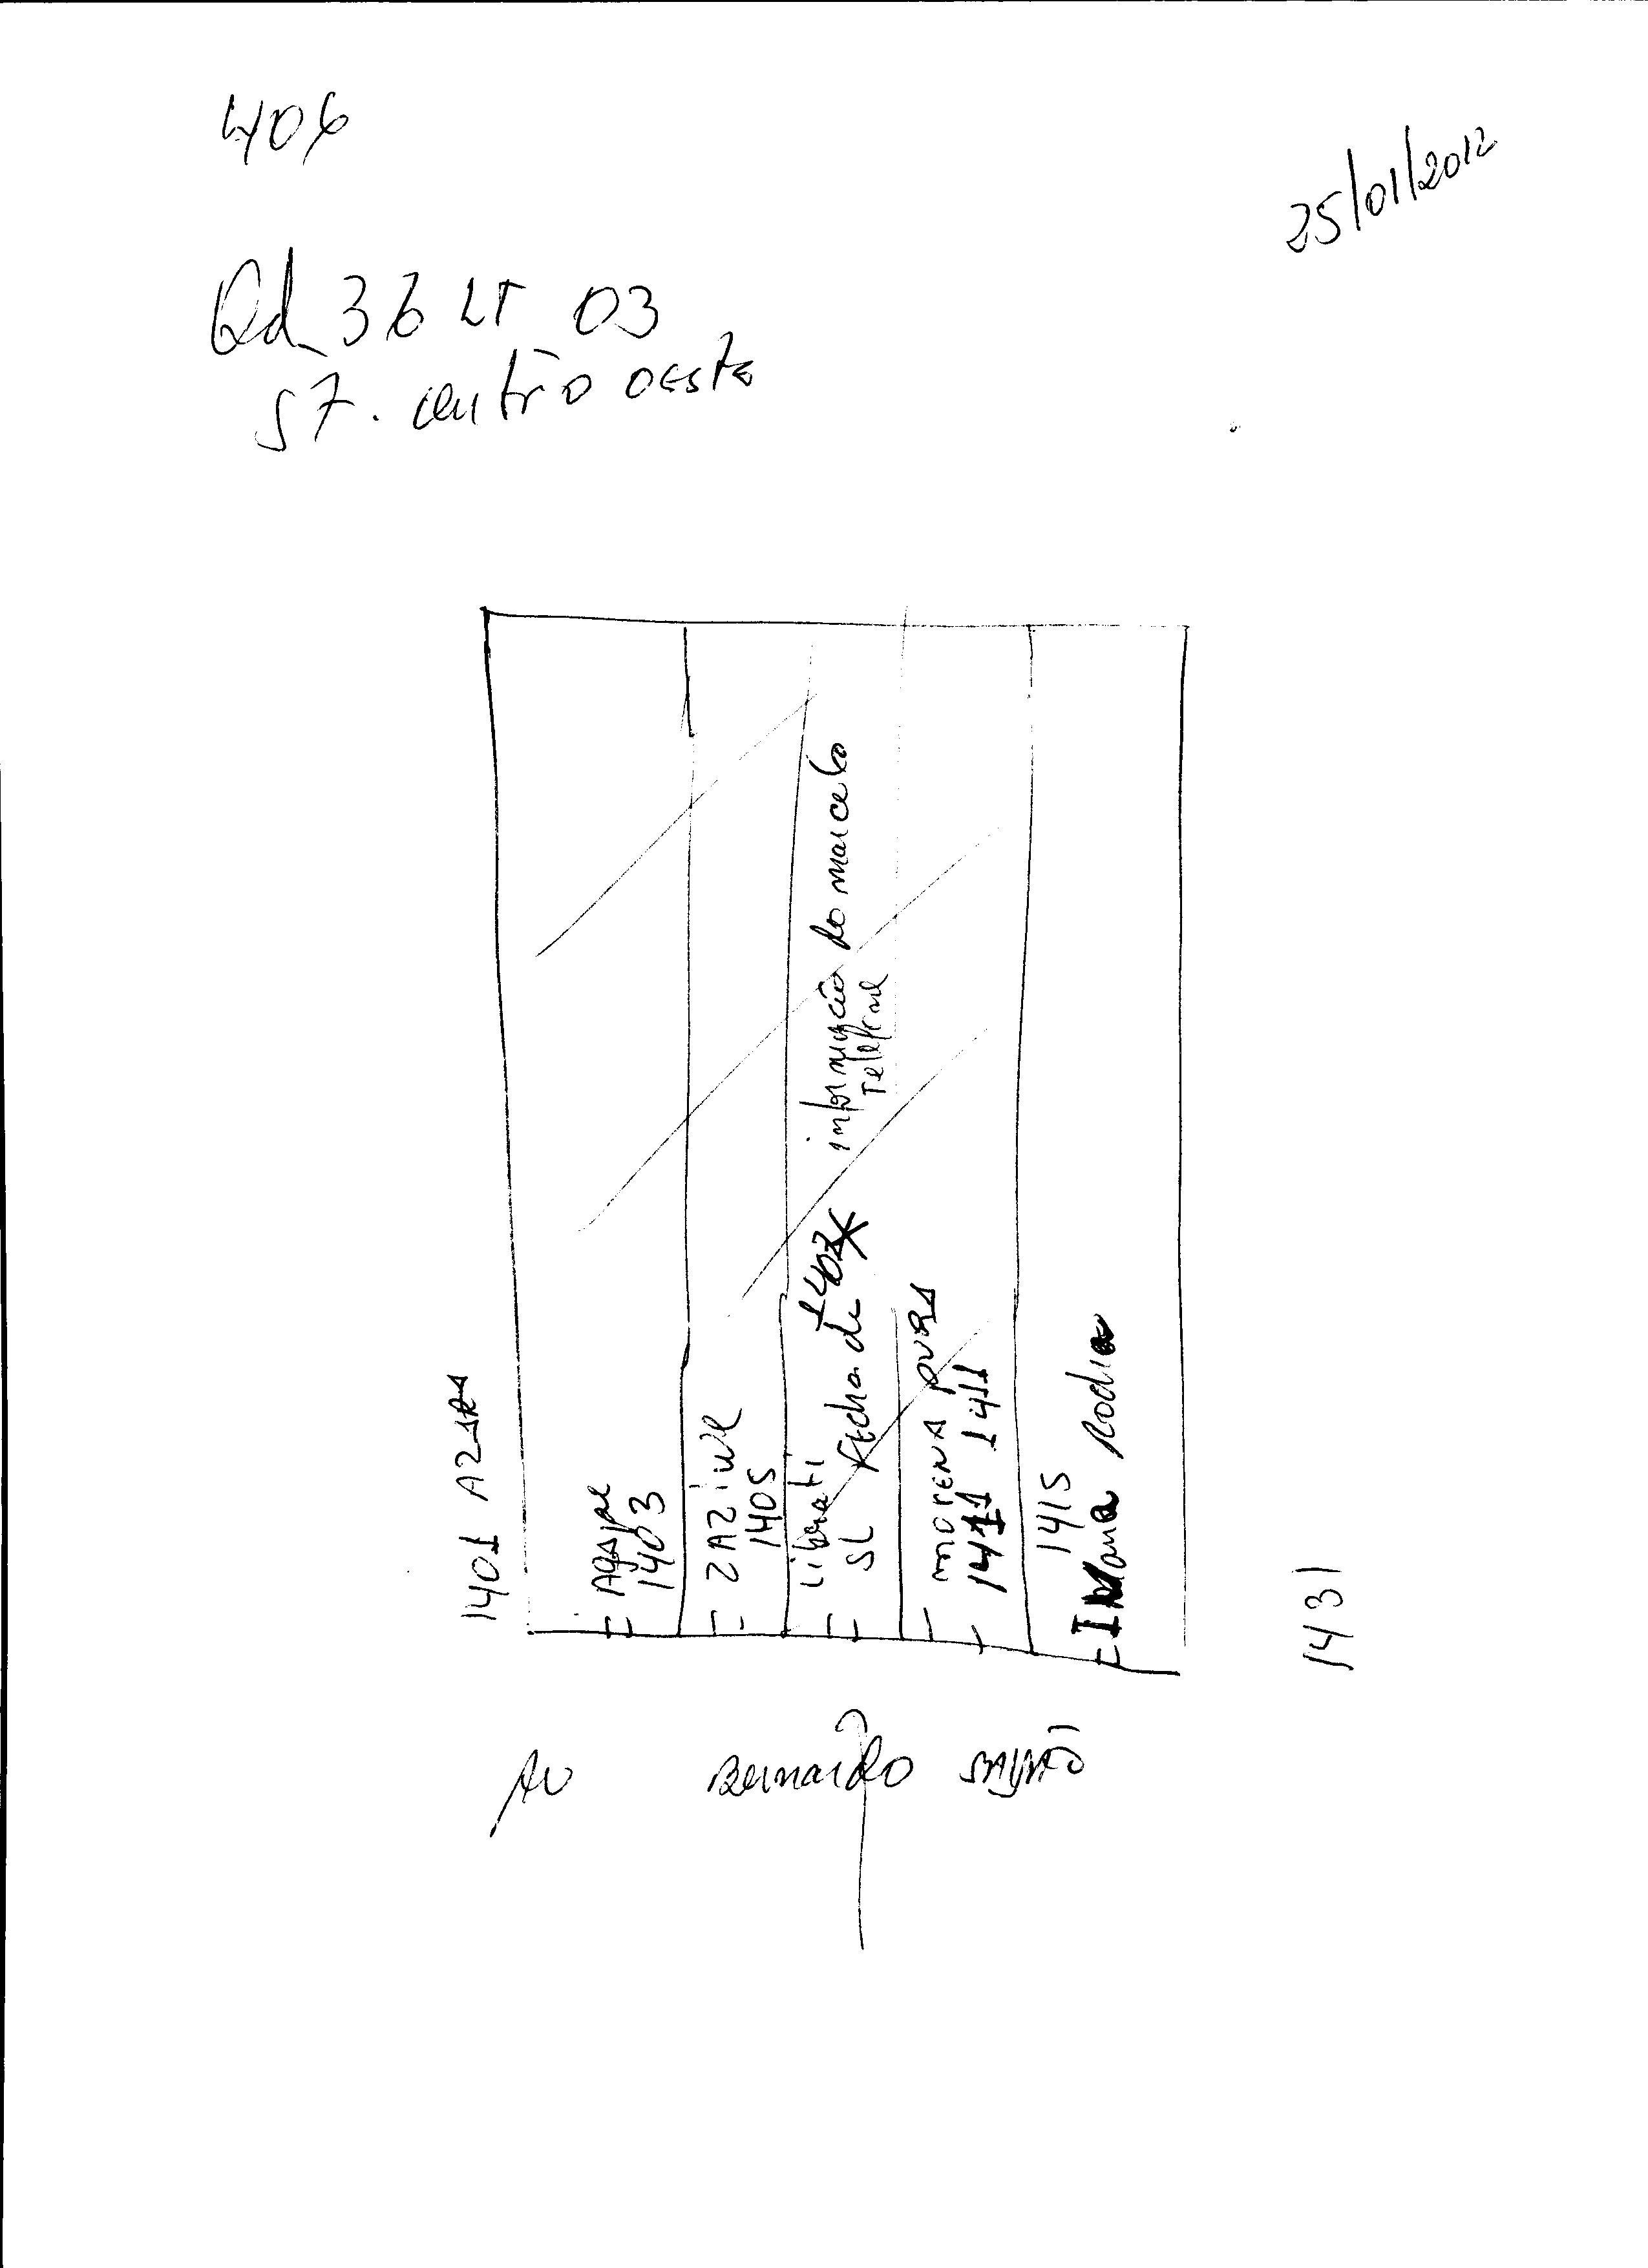 406
25/01/2012
Qd 36 LT 03
ST. centro oeste
1401 AZARA
Agape
1403
ZAZiwe
1405
Librati
SL Fecha de
informação do marcelo
Telefone
morena pura
1411 1411
1415
1431
Av Bernardo sayão